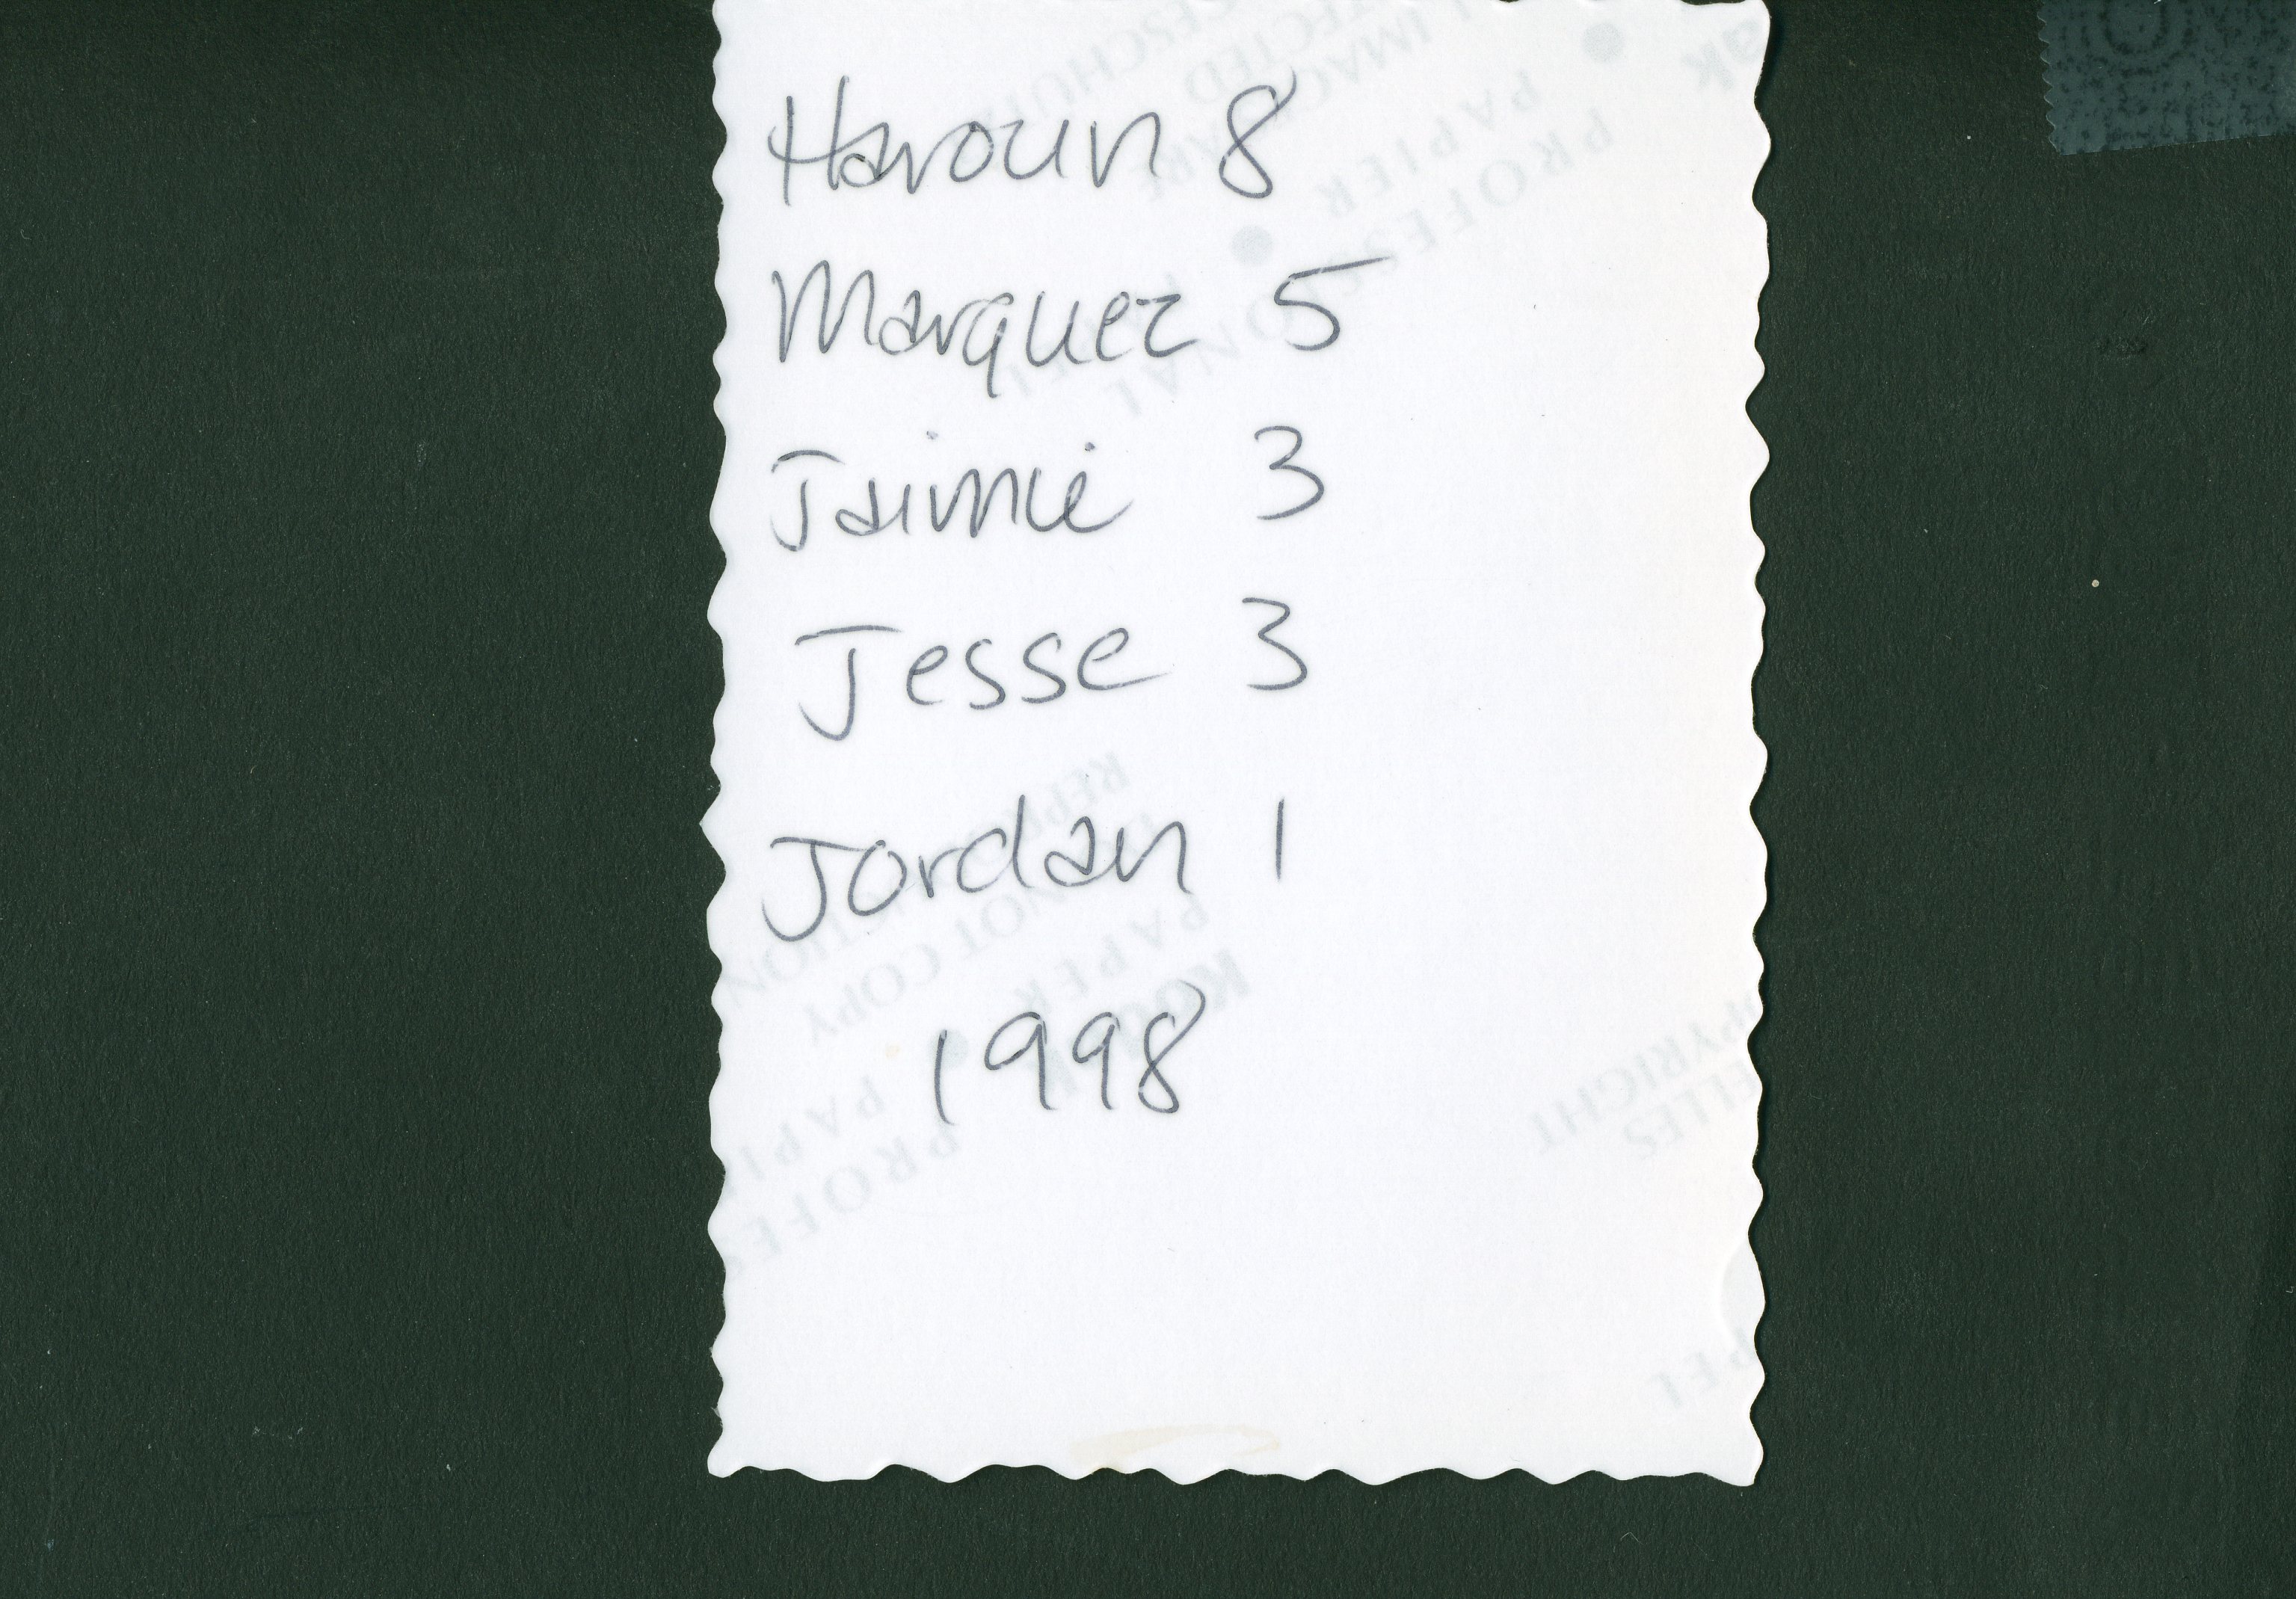 Haroun 8
Marquez 5
Jaimie 3
Jesse 3
Jordan 1
1998